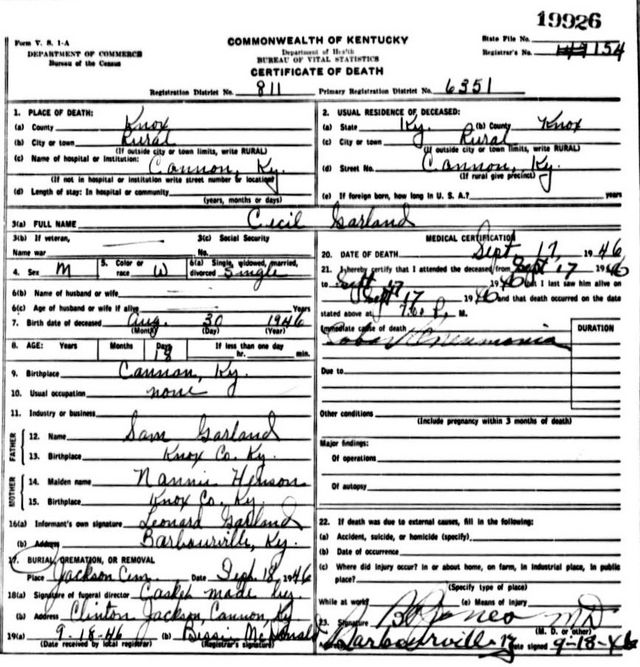 19926
Form V. S. 1-A
DEPARTMENT OF COMMERCE
Bureau of the Census
COMMONWEALTH OF KENTUCKY
Department of Health
BUREAU OF VITAL STATISTICS
CERTIFICATE OF DEATH
State File No.
Registrar's No. 154
Registration District No. 811 Primary Registration District No. 6351
1. PLACE OF DEATH:
(a) County Knox
(b) City or town Rural
(If outside city or town limits, write RURAL)
(c) Name of hospital or institution: Cannon, Ky.
(If not in hospital or institution write street number or location)
(d) Length of stay: In hospital or community
(years, months or days)
2. USUAL RESIDENCE OF DECEASED:
(a) State Ky. (b) County Knox
(c) City or town Rural
(If outside city or town limits, write RURAL)
(d) Street No. Cannon, Ky.
(If rural give precinct)
(e) If foreign born, how long in U. S. A.? years
3(a) FULL NAME Cecil Garland
3(b) If veteran,
Name war
3(c) Social Security
No.
4. Sex M 5. Color or race W 6(a) Single, widowed, married, divorced Single
6(b) Name of husband or wife
6(c) Age of husband or wife if alive Years
7. Birth date of deceased Aug. 30 1946
(Month) (Day) (Year)
8. AGE: Years Months Days 18 If less than one day
hr. min.
9. Birthplace Cannon, Ky.
10. Usual occupation none
11. Industry or business
FATHER
12. Name Sam Garland
13. Birthplace Knox Co. Ky.
MOTHER
14. Maiden name Nannie Henson
15. Birthplace Knox Co. Ky.
16(a) Informant's own signature Leonard Garland
(b) Address Barbourville, Ky.
17. BURIAL, CREMATION, OR REMOVAL
Place Jackson Cem. Date Sept. 18, 1946
18(a) Signature of funeral director Casket made
(b) Address Clinton Jackson, Cannon, Ky
19(a) 9-18-46 (b) Bessie McDonald
(Date received by local registrar) (Registrar's signature)
MEDICAL CERTIFICATION
20. DATE OF DEATH Sept 17, 1946
21. I hereby certify that I attended the deceased from Sept 17 1946
to Sept 17 1946 that I last saw him alive on
Sept 17 1946 and that death occurred on the date
stated above at P. M.
Immediate cause of death
Lobar Pneumonia
DURATION
Due to
Other conditions
(Include pregnancy within 3 months of death)
Major findings:
Of operations
Of autopsy
22. If death was due to external causes, fill in the following:
(a) Accident, suicide, or homicide (specify)
(b) Date of occurrence
(c) Where did injury occur? In or about home, on farm, in industrial place, in public
place?
(Specify type of place)
While at work? (e) Means of injury
23. Signature MD
(M. D. or other)
Address Barbourville Ky Date signed 9-18-46